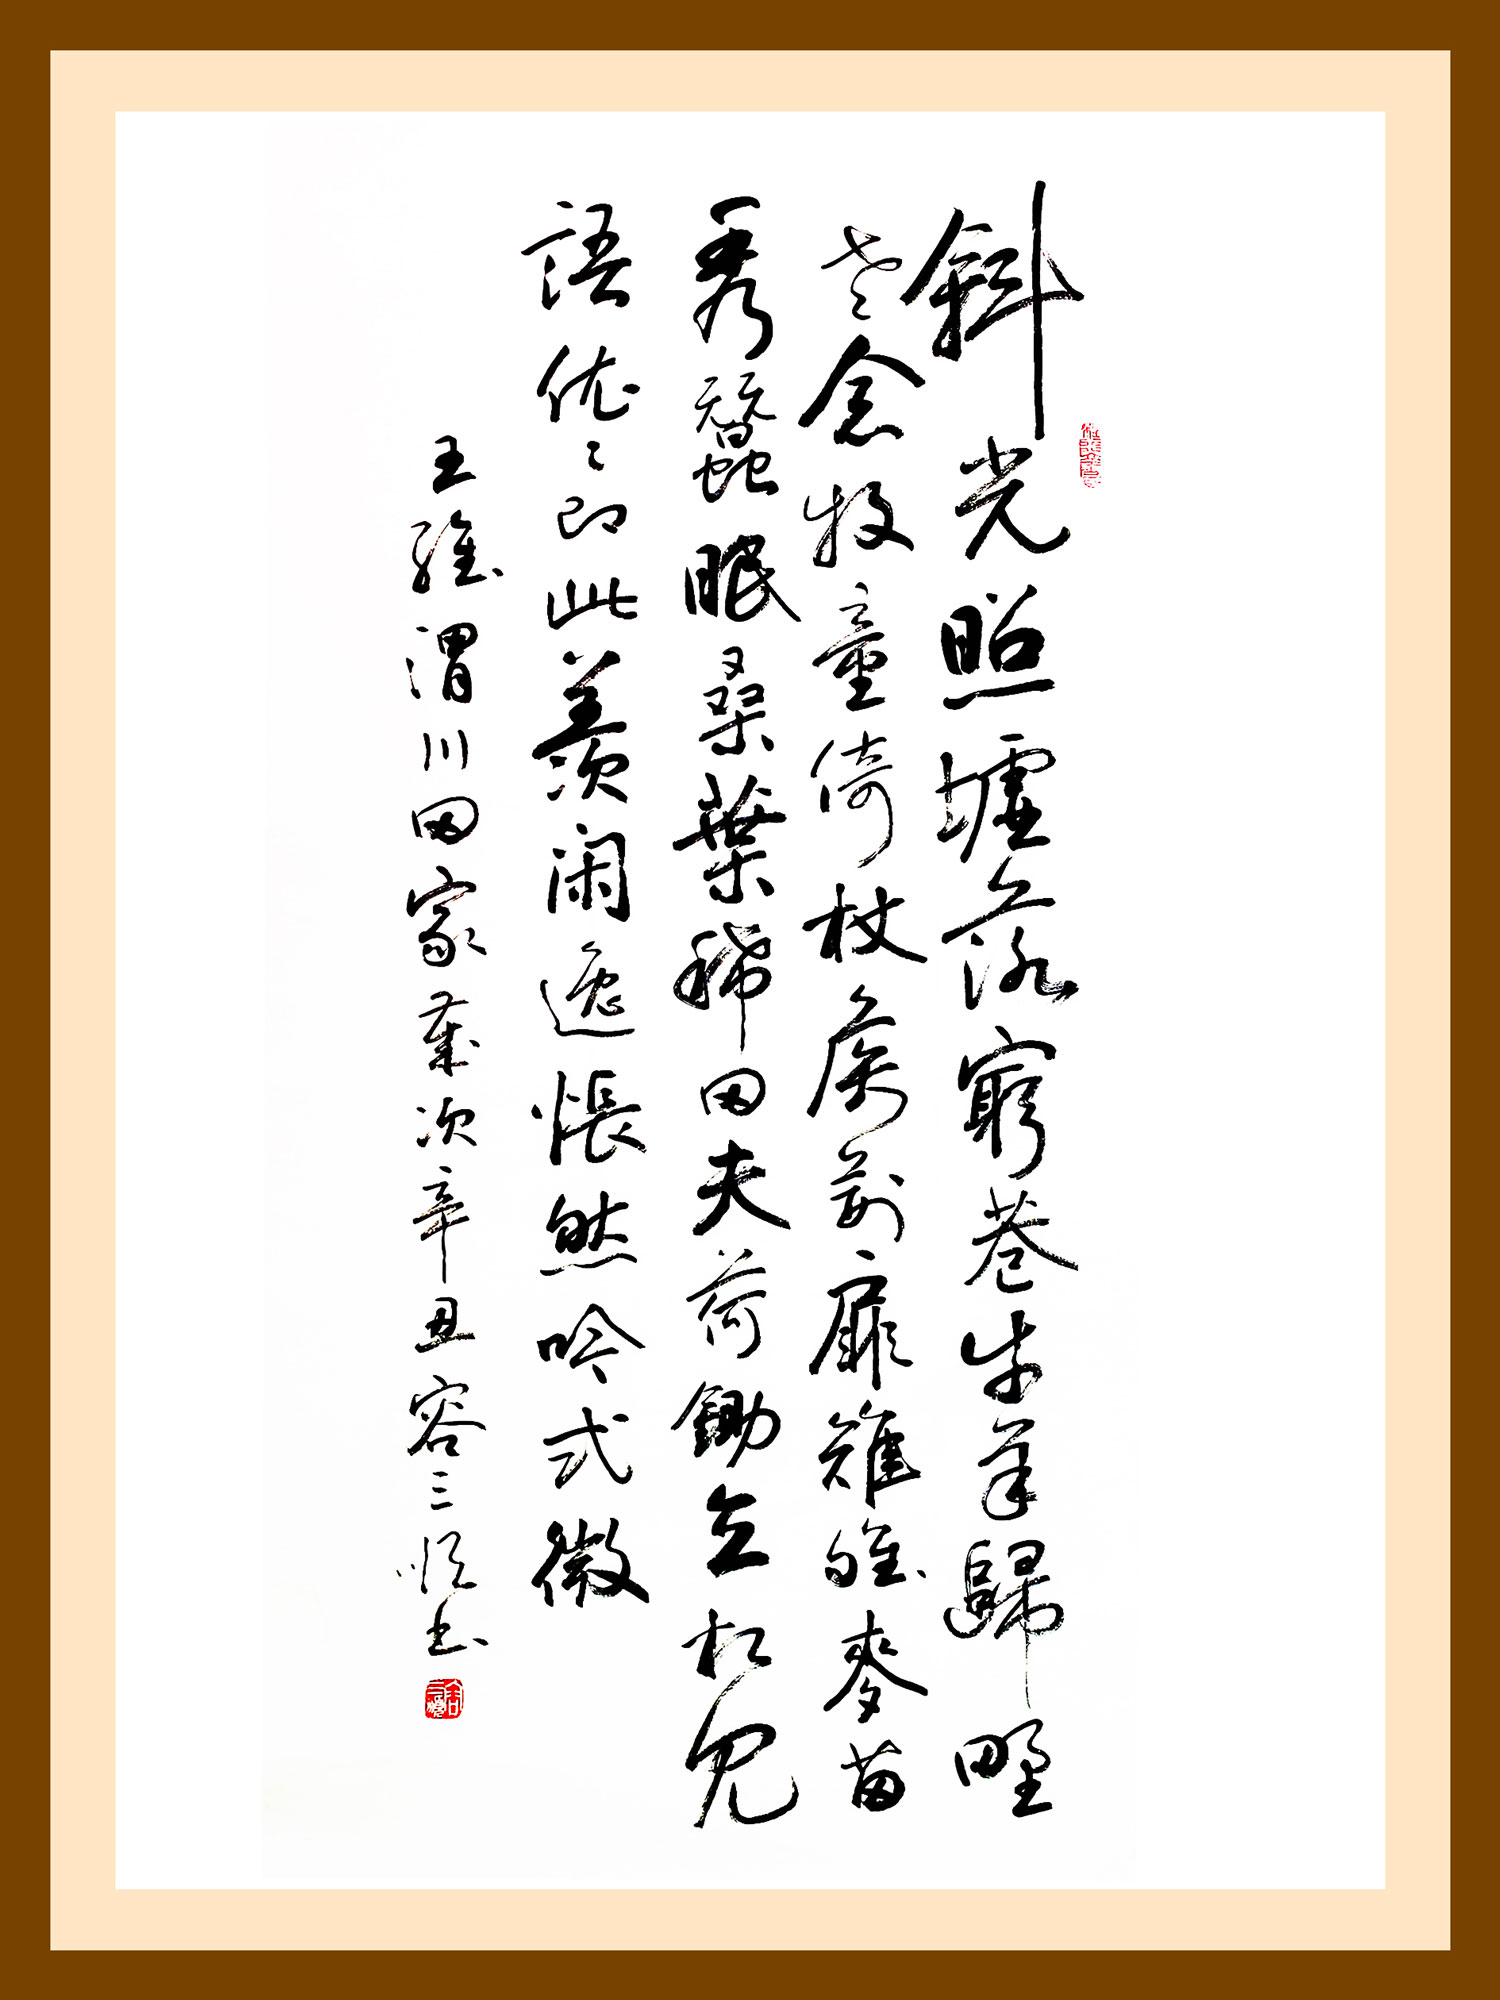 斜光照墟落窮巷牛羊歸野
老念牧童倚杖候荊扉雉雊麥苗
秀蠶眠桑葉稀田夫荷鋤立相見
語依〻即此羨閑逸悵然吟式微
王維渭川田家歲次辛丑容三悅書